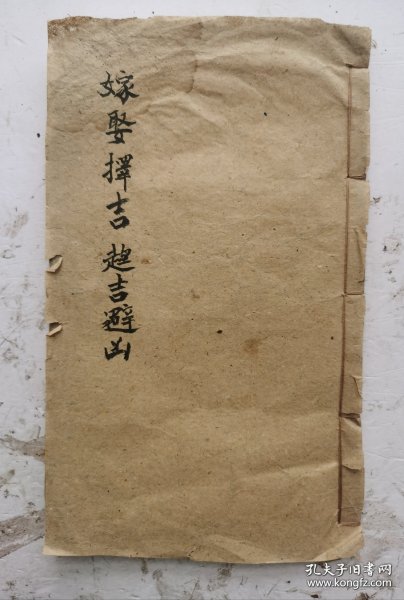 嫁娶擇吉 趋吉避凶
孔夫子旧书网
www.kongfz.com